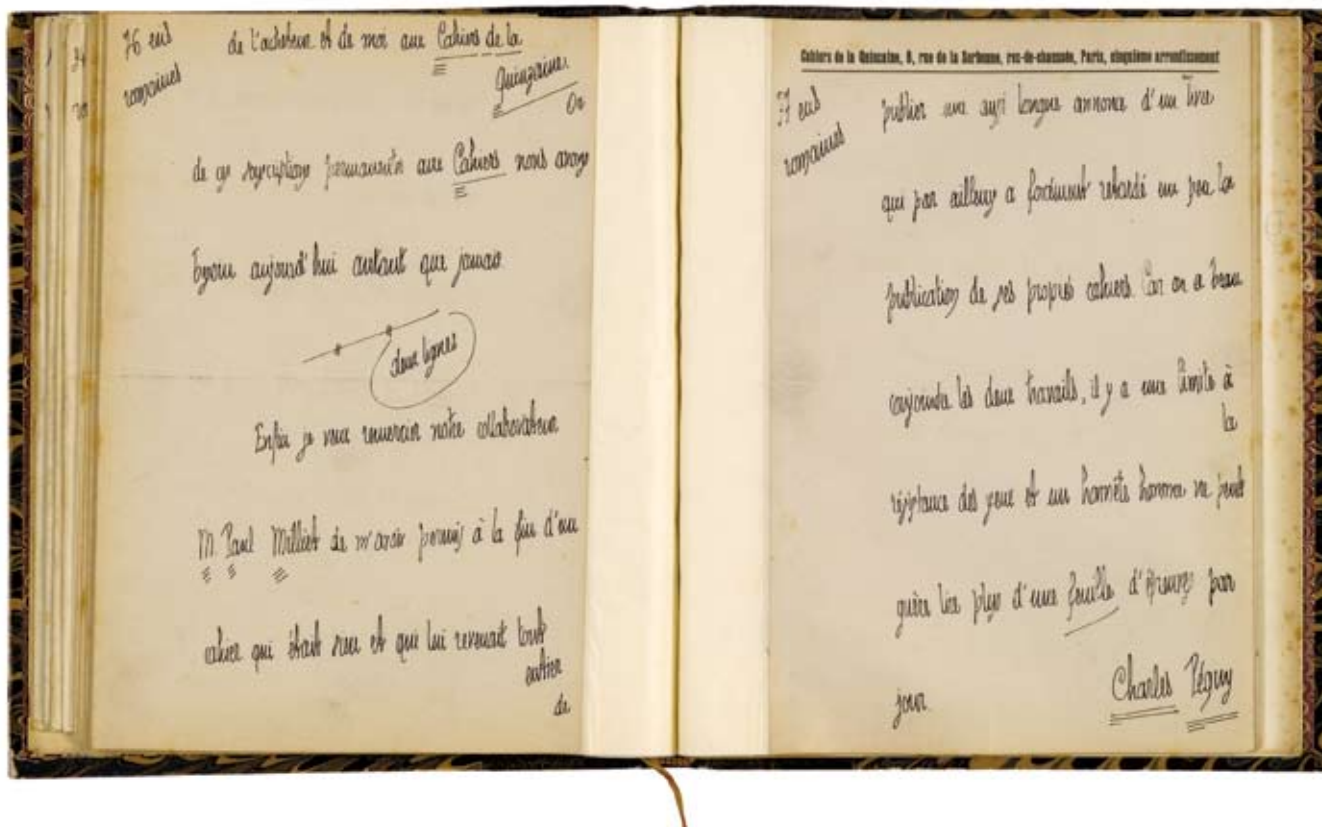 76 eus
romaines
de l'acheteur et de moi aux Cahiers de la
Quinzaine.
On
de ces souscriptions permanentes aux Cahiers nous avons
besoin aujourd'hui autant que jamais.
deux lignes
Enfin je veux remercier notre collaborateur
M. Paul Milliet de m'avoir permis à la fin d'un
cahier qui était sien et qui lui revenait tout
entier
de
Cahiers de la Quinzaine, 8, rue de la Sorbonne, rez-de-chaussée, Paris, cinquième arrondissement
77 eus
romaines
publier une aussi longue annonce d'un livre
qui par ailleurs a forcément retardé un peu la
publication de ses propres cahiers. Car on a beau
conjoindre les deux travails, il y a une limite à
la
résistance des yeux et un honnête homme ne peut
guère lire plus d'une feuille d'épreuves par
jour.
Charles Péguy